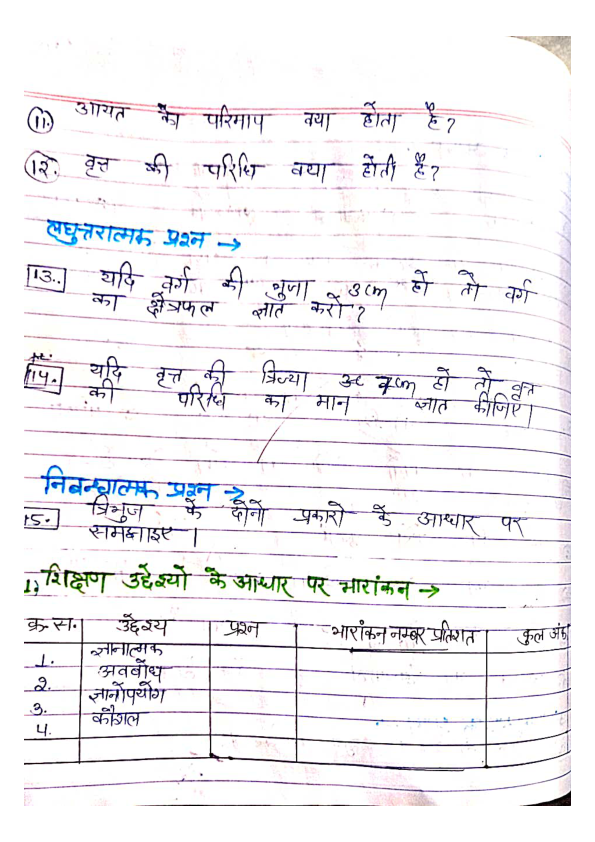 11. आयत का परिमाप क्या होता है?
12. वृत्त की परिधि क्या होती है?
लघुत्तरात्मक प्रश्न →
13.. यदि वर्ग की भुजा 3cm हो तो वर्ग
का क्षेत्रफल ज्ञात करो?
14. यदि वृत्त की त्रिज्या 7cm हो तो वृत्त
की परिधि का मान ज्ञात कीजिए।
निबन्धात्मक प्रश्न →
15. त्रिभुज के दोनो प्रकारो के आधार पर
समझाइए।
1. शिक्षण उद्देश्यो के आधार पर भारांकन →
क्र.स. उद्देश्य प्रश्न भारांकन नम्बर प्रतिशत कुल अंक
1. ज्ञानात्मक
2. अवबोध
3. ज्ञानोपयोग
4. कौशल